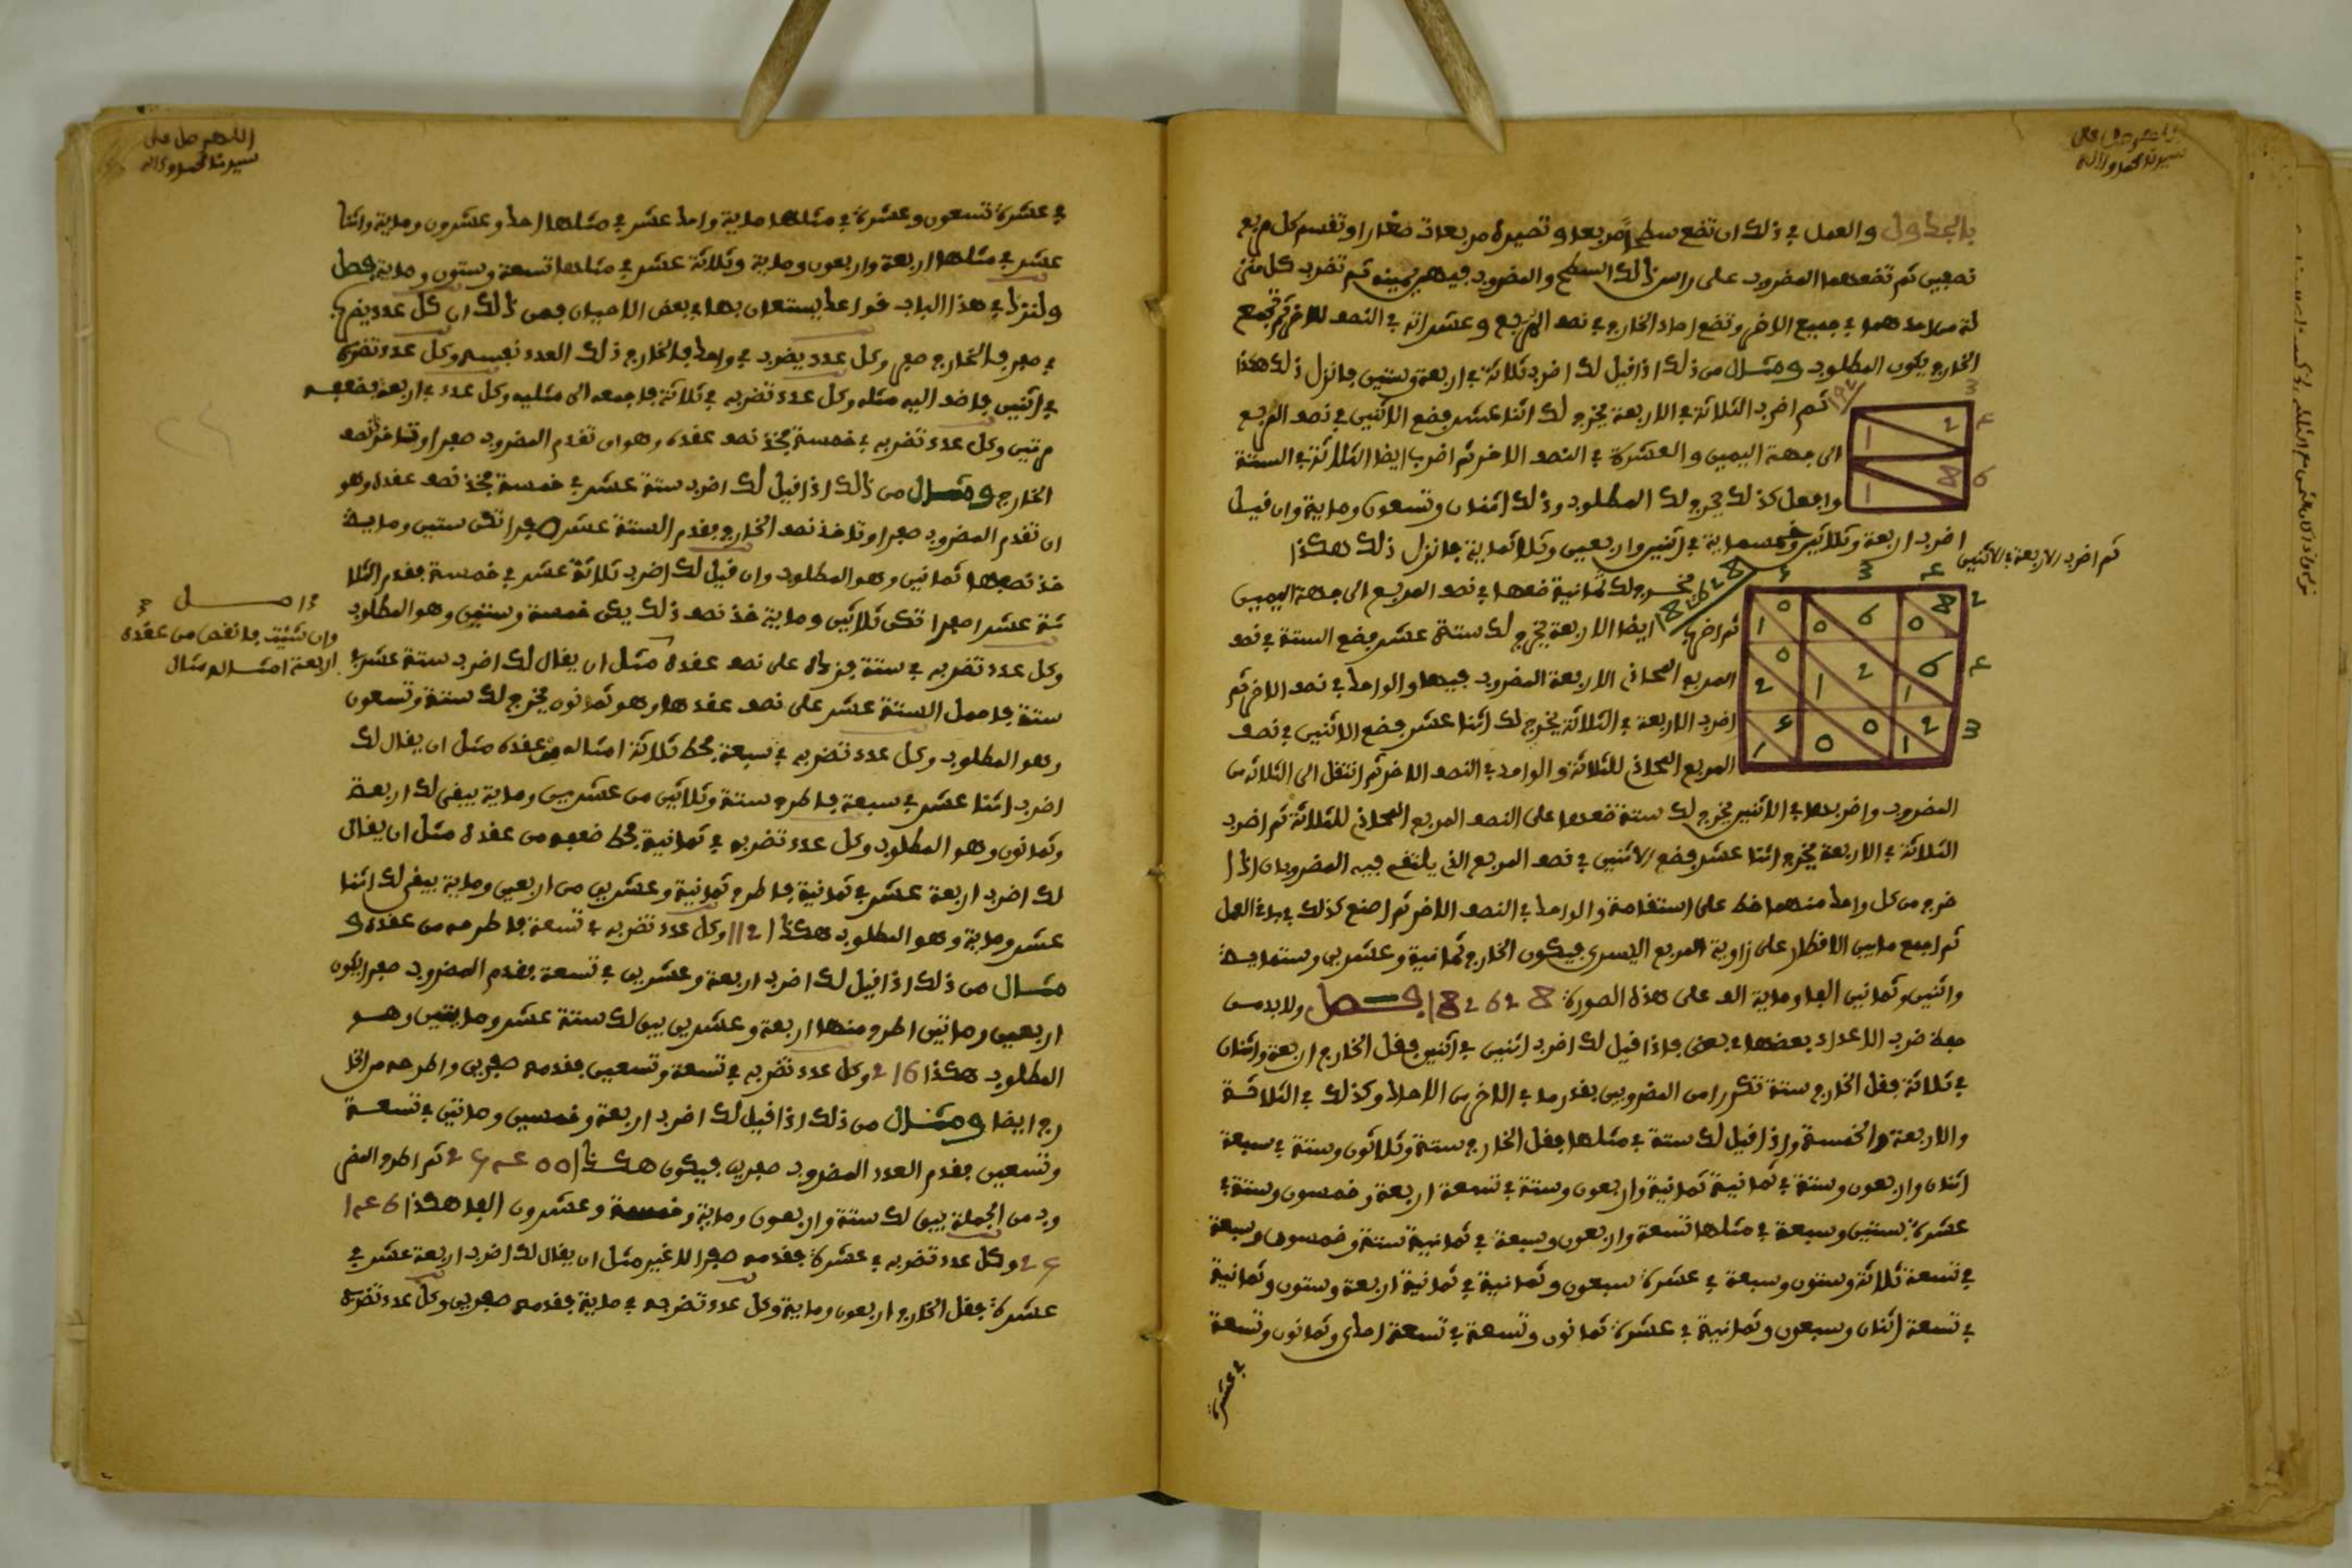 اللهم صل على
سيدنا محمد وءاله
بالجدول والعمل في ذلك ان تضع سطحا مربعا و تصيره مربعات صغارا وتقسم كل مربع
نصفين ثم تضع المضروب على راس ذلك السطح والمضروب فيه يمينه ثم تضرب كل منز
لة من احدهما في جميع الاخر وتضع احاد الخارج في نصف المربع وعشراته في النصف الاخر ثم تجمع
الخارج يكون المطلوب ومثال من ذلك اذا قيل لك اضرب ثلاثة في اربعة وستين فانزل ذلك هكذا
ثم اضرب الثلاثة في الاربعة يخرج لك اثنا عشر فضع الاثنين في نصف المربع
الى جهة اليمين والعشرة في النصف الاخر ثم اضرب ايضا الثلاثة في الستة
وافعل كذلك يخرج لك المطلوب وذلك اثنان وتسعون وماية وان قيل
اضرب اربعة وثلاثين وخمسماية في اثنين واربعين وثلاثماية فانزل ذلك هكذا
ثم اضرب الاربعة في الاثنين
يخرج لك ثمانية ضعها في نصف المربع الى جهة اليمين
ثم اضرب ايضا الاربعة يخرج لك ستة عشر فضع الستة في نصف
المربع المحاذي الاربعة المضروب فيها والواحد في نصف الاخر ثم
اضرب الاربعة في الثلاثة يخرج لك اثنا عشر فضع الاثنين في نصف
المربع المحاذي للثلاثة والواحد في النصف الاخر ثم انتقل الى الثلاثة من
المضروب واضربها في الاثنين يخرج لك ستة ضعها على النصف المربع المحاذي للثلاثة ثم اضرب
الثلاثة في الاربعة يخرج اثنا عشر فضع الاثنين في نصف المربع الذي يلتقي فيه المضروبان اذا
خرج من كل واحد منهما خط على استقامة والواحد في النصف الاخر ثم اصنع كذلك في باقي العمل
ثم اجمع ما بين الاقطار على زاوية المربع اليسرى فيكون الخارج ثمانية وعشرين وستماية
واثنين وثمانين الفا وماية الف على هذه الصورة 182628 فصل ولا بد من
حفظ ضرب الاعداد بعضها في بعض فاذا قيل لك اضرب اثنين في اثنين فقل الخارج اربعة واثنان
في ثلاثة فقل الخارج ستة تكرر احد المضروبين بقدر ما في الاخر من الاحاد وكذلك في الثلاثة
والاربعة والخمسة واذا قيل لك ستة في مثلها فقل الخارج ستة وثلاثون وستة في سبعة
اثنان واربعون وستة في ثمانية ثمانية واربعون وستة في تسعة اربعة وخمسون وستة في
عشرة ستين وسبعة في مثلها تسعة واربعون وسبعة في ثمانية ستة وخمسون وسبعة
في تسعة ثلاثة وستون وسبعة في عشرة سبعون وثمانية في ثمانية اربعة وستون وثمانية
في تسعة اثنان وسبعون وثمانية في عشرة ثمانون وتسعة في تسعة احدى وثمانون وتسعة
في عشرة
اللهم صل على
سيدنا محمد وءاله
في عشرة تسعون وعشرة في مثلها ماية واحد عشر في مثلها احد وعشرون وماية واثنا
عشر في مثلها اربعة واربعون وماية وثلاثة عشر في مثلها تسعة وستون وماية فصل
ولنزد في هذا الباب قواعد يستعان بها في بعض الاحيان فمن ذلك ان كل عدد يضرب
في صفر فالخارج صفر وكل عدد يضرب في واحد فالخارج ذلك العدد نفسه وكل عدد تضربه
في اثنين فاضف اليه مثله وكل عدد تضربه في ثلاثة فاجمعه الى مثليه وكل عدد في اربعة فضعفه
مرتين وكل عدد تضربه في خمسة فخذ نصف عقده وهو ان تقدم المضروب صفرا وتاخذ نصف
الخارج ومثال من ذلك اذا قيل لك اضرب ستة عشر في خمسة فخذ نصف عقده وهو
ان تقدم المضروب صفرا وتاخذ نصف الخارج فقدم الستة عشر صفرا تكن ستين وماية
خذ نصفها ثمانين وهو المطلوب وان قيل لك اضرب ثلاثة عشر في خمسة فقدم الثلا
ثة عشر صفرا تكن ثلاثين وماية خذ نصف ذلك يكن خمسة وستين وهو المطلوب
وكل عدد تضربه في ستة فزده على نصف عقده مثل ان يقال لك اضرب ستة عشر في
ستة فاحمل الستة عشر على نصف عقدها وهو ثمانون يخرج لك ستة وتسعون
وهو المطلوب وكل عدد تضربه في سبعة فحط ثلاثة امثاله من عقده مثل ان يقال لك
اضرب اثنا عشر في سبعة فاطرح ستة وثلاثين من عشرين وماية يبقى لك اربعة
وثمانون وهو المطلوب وكل عدد تضربه في ثمانية فحط ضعفه من عقده مثل ان يقال
لك اضرب اربعة عشر في ثمانية فاطرح ثمانية وعشرين من اربعين وماية يبقى لك اثنا
عشر وماية وهو المطلوب هكذا 112 وكل عدد تضربه في تسعة فاطرحه من عقده و
مثال من ذلك اذا قيل لك اضرب اربعة وعشرين في تسعة فقدم المضروب صفرا يكون
اربعين وماتين اطرح منها اربعة وعشرين يبق لك ستة عشر ومايتين وهو
المطلوب هكذا 216 وكل عدد تضربه في تسعة وتسعين فقدمه صفرين واطرحه من الخا
رج ايضا ومثال من ذلك اذا قيل لك اضرب اربعة وخمسين وماتين في تسعة
وتسعين فقدم العدد المضروب صفرين فيكون هكذا 25400 ثم اطرح المضر
وب من الجملة يبق لك ستة واربعون وماية وخمسة وعشرون الفا هكذا 146
25 وكل عدد تضربه في عشرة فقدمه صفرا لا غير مثل ان يقال لك اضرب اربعة عشر في
عشرة فقل الخارج اربعون وماية وكل عدد تضربه في ماية فقدمه صفرين وكل عدد تضربه
وان شئت فانقص من عقده
اربعة امثاله مثال